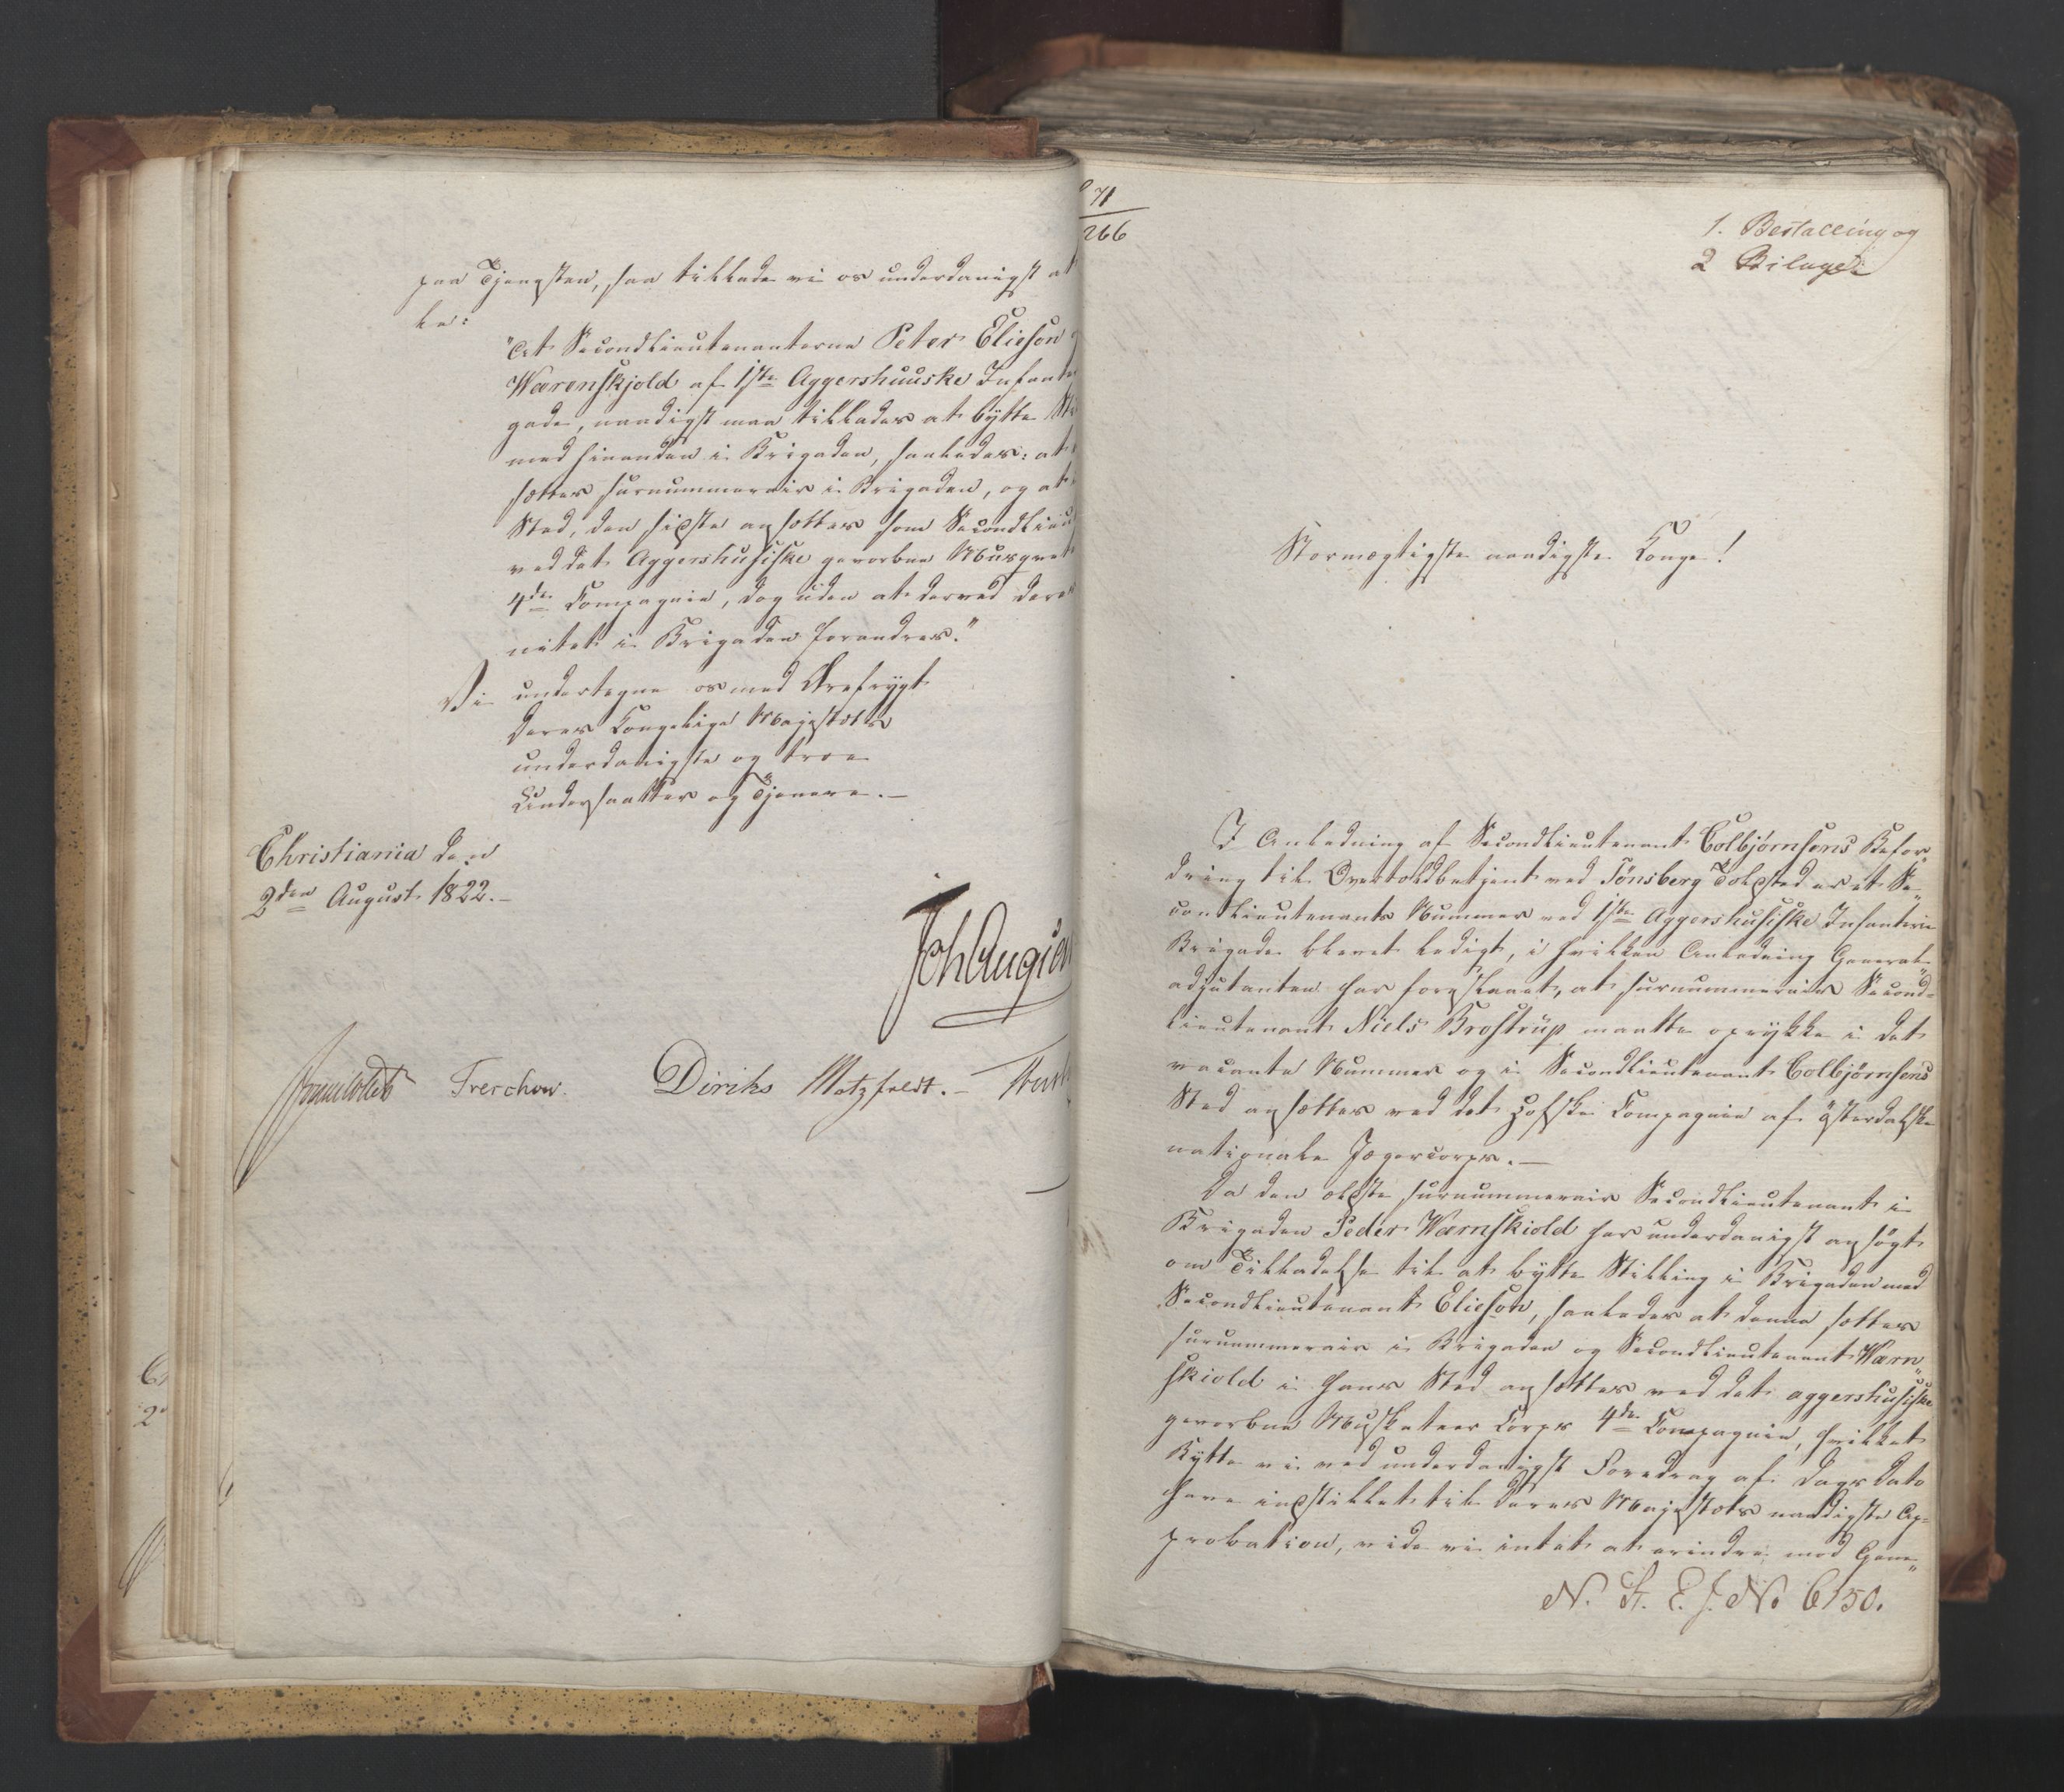 paa Tjenesten, saa tillade vi os underdanigst at
le:
"At Secondlieutenanterne Peter Elieson
Wærenskjold af 1ste Aggershuuske Infante
gade, naadigst maa tillades at bytte St
med hinanden i Brigaden, saaledes: at
sættes surnummerair i Brigaden, og at
Sted, den sidste ansættes som Secondlieut
ved det Aggershusiske gevorbne Musquet
4de Compagnie, dog uden at derved deres
nitet i Brigaden forandres."
Vi undertegne os med Ærefrygt
Deres Kongelige Majestæts
underdanigste og troe
Undersaatter og Tjenere.–
Christiania den
2den August 1822.–
Treschow. Diriks Motzfeldt.–
71
266
1. Bestalling og
2 Bilage
Stormægtigste naadigste Konge!
I Anledning af Secondlieutenant Colbjørnsens Befor„
dring til Overtoldbetjent ved Tönsberg Toldsted er et Se„
condlieutenants Nummer ved 1ste Aggershusiske Infanterie
Brigade blevet ledigt, i hvilken Anledning General„
adjutanten har foreslaaet, at surnummerair Second„
lieutenant Niels Brostrup maatte oprykke i det
vacante Nummer og i Secondlieutenant Colbjørnsens
Sted ansættes ved det Compagnie af Österdalske
nationale Jægercorps.–
Da den ældste surnummerair Secondlieutenant i
Brigaden Peder Wærnskiold har underdanigst ansögt
om Tilladelse til at bytte Stilling i Brigaden med
Secondlieutenant Elieson, saaledes at denne sættes
surnummerair i Brigaden og Secondlieutenant Wærn„
skiold i hans Sted ansættes ved det aggershusiske
gevorbne Musketeer Corps 4de Compagnie, hvilket
Bytte vi ved underdanigst Foredrag af Dags Dato
have indstillet til Deres Majestæts naadigste Ap„
probation, vide vi intet at erindre mod Gene„
N. St. E. J. No 6150.